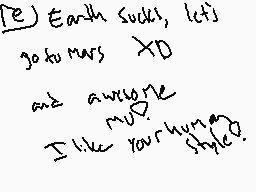 [e] Earth sucks, let's
go to mars XD
and awesome
mu♡
I like your human
style♡.